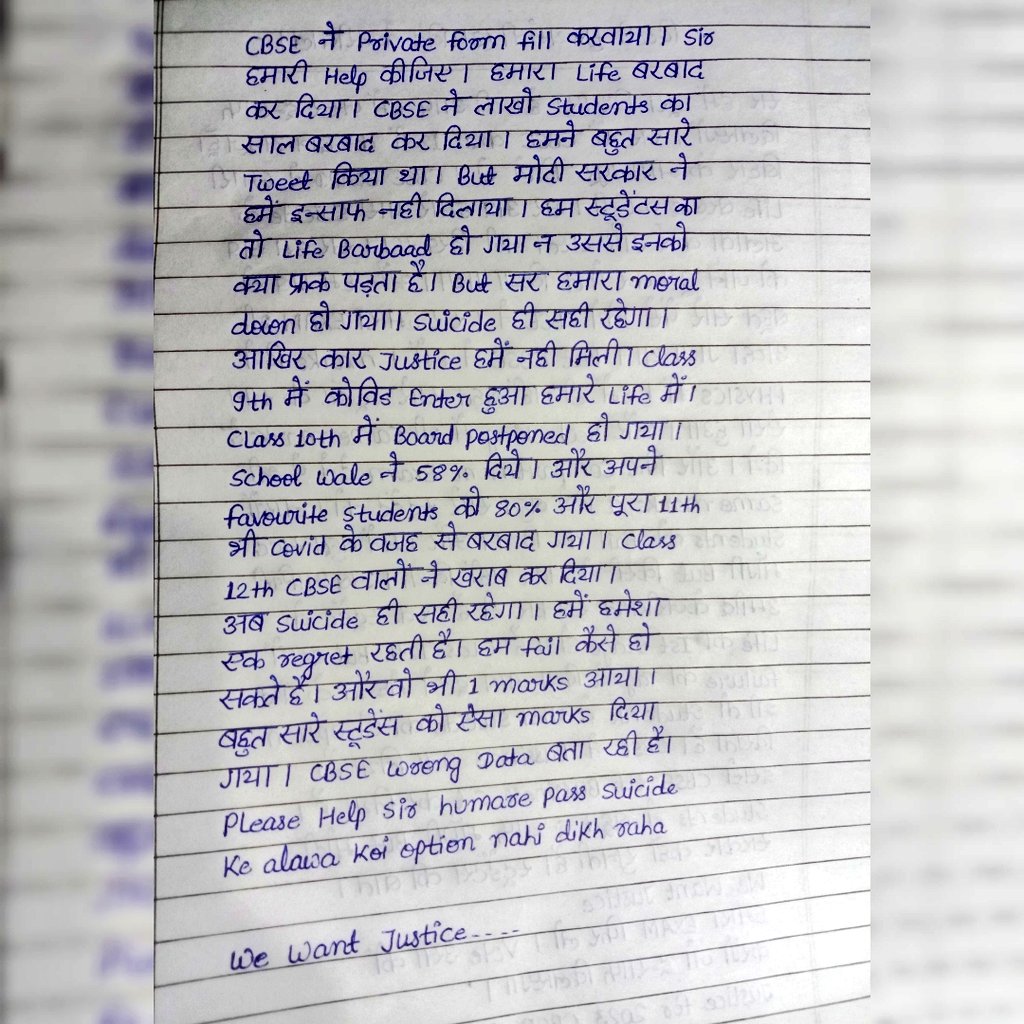 CBSE ने Private form fill करवाया। Sir
हमारी Help कीजिए। हमारा Life बरबाद
कर दिया। CBSE ने लाखो Students का
साल बरबाद कर दिया। हमने बहुत सारे
Tweet किया था। But मोदी सरकार ने
हमें इन्साफ नही दिलाया। हम स्टूडेंटस का
तो Life Barbaad हो गया न उससे इनको
क्या फ्रक पड़ता है। But सर हमारा moral
down हो गया। Suicide ही सही रहेगा।
आखिर कार Justice हमें नही मिली। Class
9th में कोविड Enter हुआ हमारे Life में।
Class 10th में Board postponed हो गया।
School wale ने 58% दिये। और अपने
favourite Students को 80% और पूरा 11th
भी Covid के वजह से बरबाद गया। Class
12th CBSE वालों ने खराब कर दिया।
अब Suicide ही सही रहेगा। हमें हमेशा
एक regret रहती है। हम fail कैसे हो
सकते हैं। और वो भी 1 marks आया।
बहुत सारे स्टूडेंस को ऐसा marks दिया
गया। CBSE Wrong Data बता रही है।
Please Help Sir humare pass Suicide
Ke alawa Koi option nahi dikh raha
We Want Justice.....